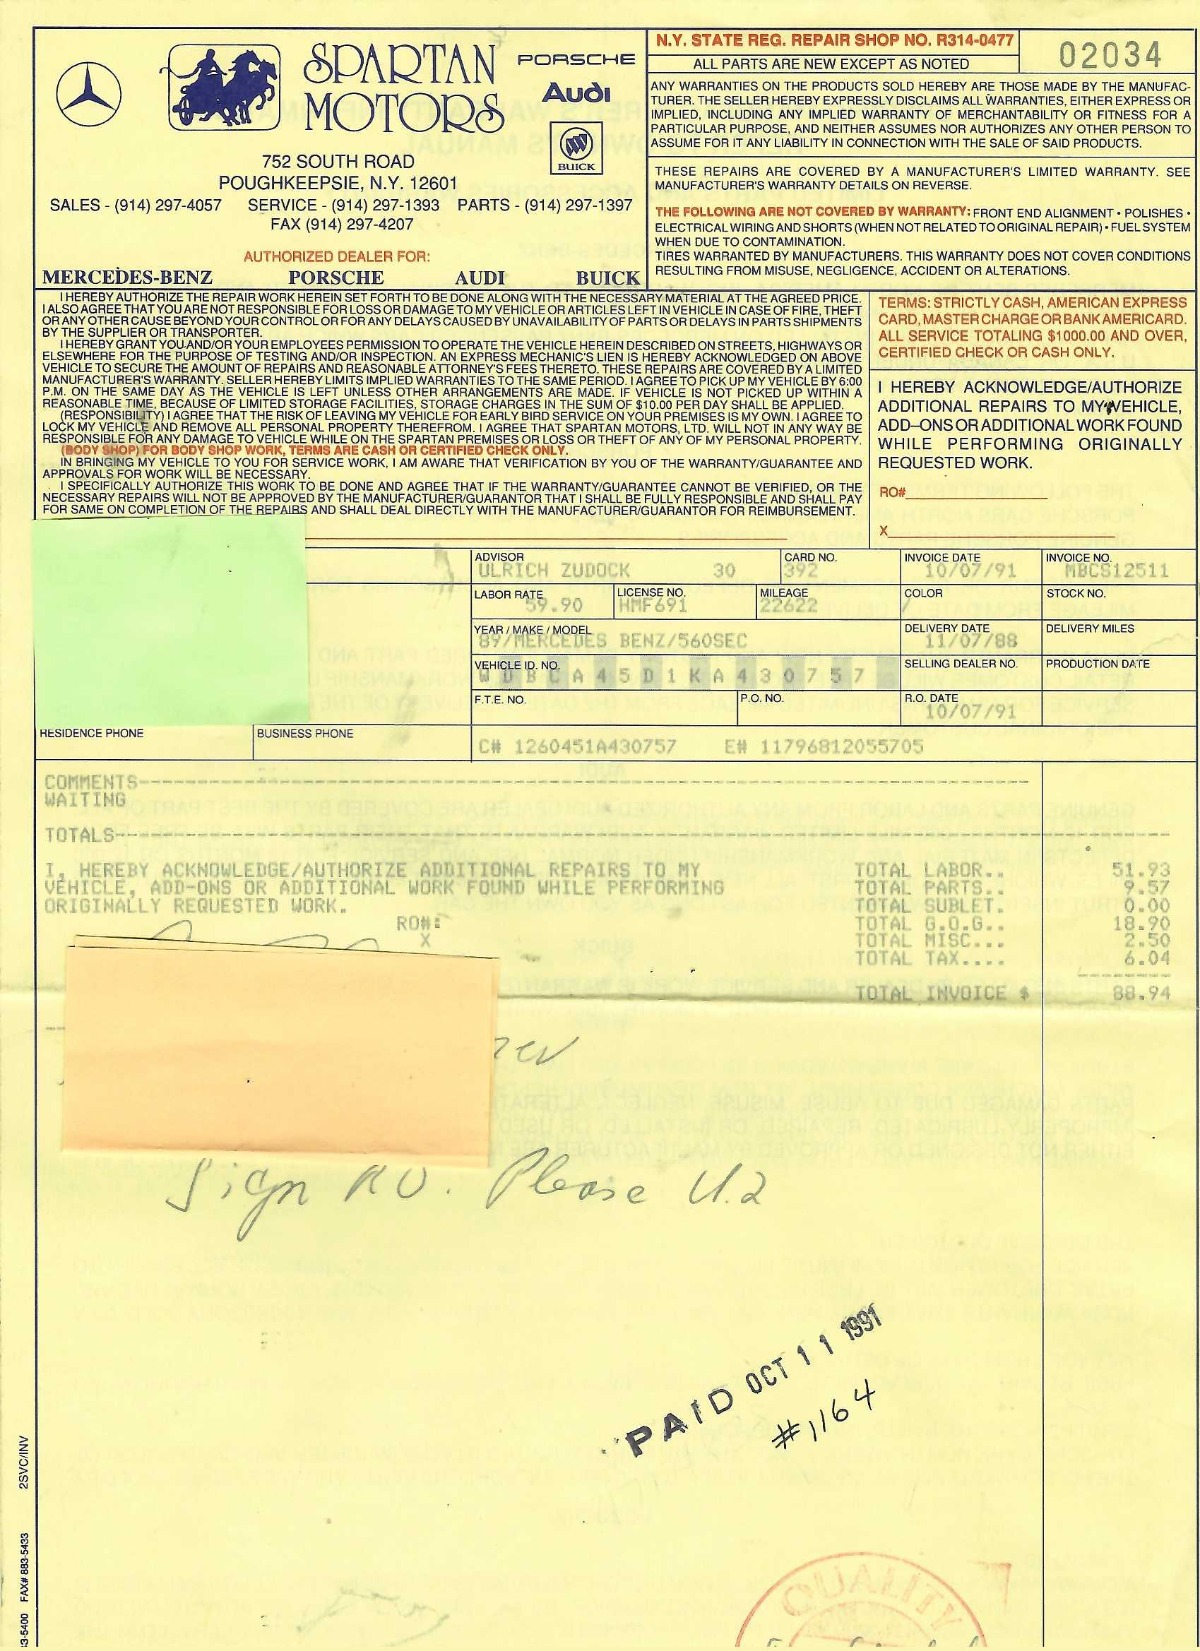 SPARTAN
MOTORS
PORSCHE
Audi
BUICK
752 SOUTH ROAD
POUGHKEEPSIE, N.Y. 12601
SALES - (914) 297-4057 SERVICE - (914) 297-1393 PARTS - (914) 297-1397
FAX (914) 297-4207
AUTHORIZED DEALER FOR:
MERCEDES-BENZ PORSCHE AUDI BUICK
N.Y. STATE REG. REPAIR SHOP NO. R314-0477
ALL PARTS ARE NEW EXCEPT AS NOTED
02034
ANY WARRANTIES ON THE PRODUCTS SOLD HEREBY ARE THOSE MADE BY THE MANUFAC-
TURER. THE SELLER HEREBY EXPRESSLY DISCLAIMS ALL WARRANTIES, EITHER EXPRESS OR
IMPLIED, INCLUDING ANY IMPLIED WARRANTY OF MERCHANTABILITY OR FITNESS FOR A
PARTICULAR PURPOSE, AND NEITHER ASSUMES NOR AUTHORIZES ANY OTHER PERSON TO
ASSUME FOR IT ANY LIABILITY IN CONNECTION WITH THE SALE OF SAID PRODUCTS.
THESE REPAIRS ARE COVERED BY A MANUFACTURER'S LIMITED WARRANTY. SEE
MANUFACTURER'S WARRANTY DETAILS ON REVERSE.
THE FOLLOWING ARE NOT COVERED BY WARRANTY: FRONT END ALIGNMENT • POLISHES •
ELECTRICAL WIRING AND SHORTS (WHEN NOT RELATED TO ORIGINAL REPAIR) • FUEL SYSTEM
WHEN DUE TO CONTAMINATION.
TIRES WARRANTED BY MANUFACTURERS. THIS WARRANTY DOES NOT COVER CONDITIONS
RESULTING FROM MISUSE, NEGLIGENCE, ACCIDENT OR ALTERATIONS.
I HEREBY AUTHORIZE THE REPAIR WORK HEREIN SET FORTH TO BE DONE ALONG WITH THE NECESSARY MATERIAL AT THE AGREED PRICE.
I ALSO AGREE THAT YOU ARE NOT RESPONSIBLE FOR LOSS OR DAMAGE TO MY VEHICLE OR ARTICLES LEFT IN VEHICLE IN CASE OF FIRE, THEFT
OR ANY OTHER CAUSE BEYOND YOUR CONTROL OR FOR ANY DELAYS CAUSED BY UNAVAILABILITY OF PARTS OR DELAYS IN PARTS SHIPMENTS
BY THE SUPPLIER OR TRANSPORTER.
I HEREBY GRANT YOU AND/OR YOUR EMPLOYEES PERMISSION TO OPERATE THE VEHICLE HEREIN DESCRIBED ON STREETS, HIGHWAYS OR
ELSEWHERE FOR THE PURPOSE OF TESTING AND/OR INSPECTION. AN EXPRESS MECHANIC'S LIEN IS HEREBY ACKNOWLEDGED ON ABOVE
VEHICLE TO SECURE THE AMOUNT OF REPAIRS AND REASONABLE ATTORNEY'S FEES THERETO. THESE REPAIRS ARE COVERED BY A LIMITED
MANUFACTURER'S WARRANTY. SELLER HEREBY LIMITS IMPLIED WARRANTIES TO THE SAME PERIOD. I AGREE TO PICK UP MY VEHICLE BY 6:00
P.M. ON THE SAME DAY AS THE VEHICLE IS LEFT UNLESS OTHER ARRANGEMENTS ARE MADE. IF VEHICLE IS NOT PICKED UP WITHIN A
REASONABLE TIME, BECAUSE OF LIMITED STORAGE FACILITIES, STORAGE CHARGES IN THE SUM OF $10.00 PER DAY SHALL BE APPLIED.
(RESPONSIBILITY) I AGREE THAT THE RISK OF LEAVING MY VEHICLE FOR EARLY BIRD SERVICE ON YOUR PREMISES IS MY OWN. I AGREE TO
LOCK MY VEHICLE AND REMOVE ALL PERSONAL PROPERTY THEREFROM. I AGREE THAT SPARTAN MOTORS, LTD. WILL NOT IN ANY WAY BE
RESPONSIBLE FOR ANY DAMAGE TO VEHICLE WHILE ON THE SPARTAN PREMISES OR LOSS OR THEFT OF ANY OF MY PERSONAL PROPERTY.
(BODY SHOP) FOR BODY SHOP WORK, TERMS ARE CASH OR CERTIFIED CHECK ONLY.
IN BRINGING MY VEHICLE TO YOU FOR SERVICE WORK, I AM AWARE THAT VERIFICATION BY YOU OF THE WARRANTY/GUARANTEE AND
APPROVALS FOR WORK WILL BE NECESSARY.
I SPECIFICALLY AUTHORIZE THIS WORK TO BE DONE AND AGREE THAT IF THE WARRANTY/GUARANTEE CANNOT BE VERIFIED, OR THE
NECESSARY REPAIRS WILL NOT BE APPROVED BY THE MANUFACTURER/GUARANTOR THAT I SHALL BE FULLY RESPONSIBLE AND SHALL PAY
FOR SAME ON COMPLETION OF THE REPAIRS AND SHALL DEAL DIRECTLY WITH THE MANUFACTURER/GUARANTOR FOR REIMBURSEMENT.
TERMS: STRICTLY CASH, AMERICAN EXPRESS
CARD, MASTER CHARGE OR BANKAMERICARD.
ALL SERVICE TOTALING $1000.00 AND OVER,
CERTIFIED CHECK OR CASH ONLY.
I HEREBY ACKNOWLEDGE/AUTHORIZE
ADDITIONAL REPAIRS TO MY VEHICLE,
ADD-ONS OR ADDITIONAL WORK FOUND
WHILE PERFORMING ORIGINALLY
REQUESTED WORK.
RO#
X
ADVISOR CARD NO. INVOICE DATE INVOICE NO.
ULRICH ZUDOCK 30 392 10/07/91 MBCS12511
LABOR RATE LICENSE NO. MILEAGE COLOR STOCK NO.
59.90 HMF691 22622 /
YEAR / MAKE / MODEL DELIVERY DATE DELIVERY MILES
89/MERCEDES BENZ/560SEC 11/07/88
VEHICLE ID. NO. SELLING DEALER NO. PRODUCTION DATE
W D B C A 4 5 D 1 K A 4 3 0 7 5 7
F.T.E. NO. P.O. NO. R.O. DATE
10/07/91
RESIDENCE PHONE BUSINESS PHONE
C# 1260451A430757 E# 11796812055705
COMMENTS
WAITING
TOTALS
I, HEREBY ACKNOWLEDGE/AUTHORIZE ADDITIONAL REPAIRS TO MY
VEHICLE, ADD-ONS OR ADDITIONAL WORK FOUND WHILE PERFORMING
ORIGINALLY REQUESTED WORK.
RO#:
X
TOTAL LABOR.. 51.93
TOTAL PARTS.. 9.57
TOTAL SUBLET. 0.00
TOTAL G.O.G.. 18.90
TOTAL MISC... 2.50
TOTAL TAX.... 6.04
TOTAL INVOICE $ 88.94
Sign RO. Please U.Z
PAID OCT 11 1991
#1164
QUALITY
2SVC/INV
3-5400 FAX# 883-5433